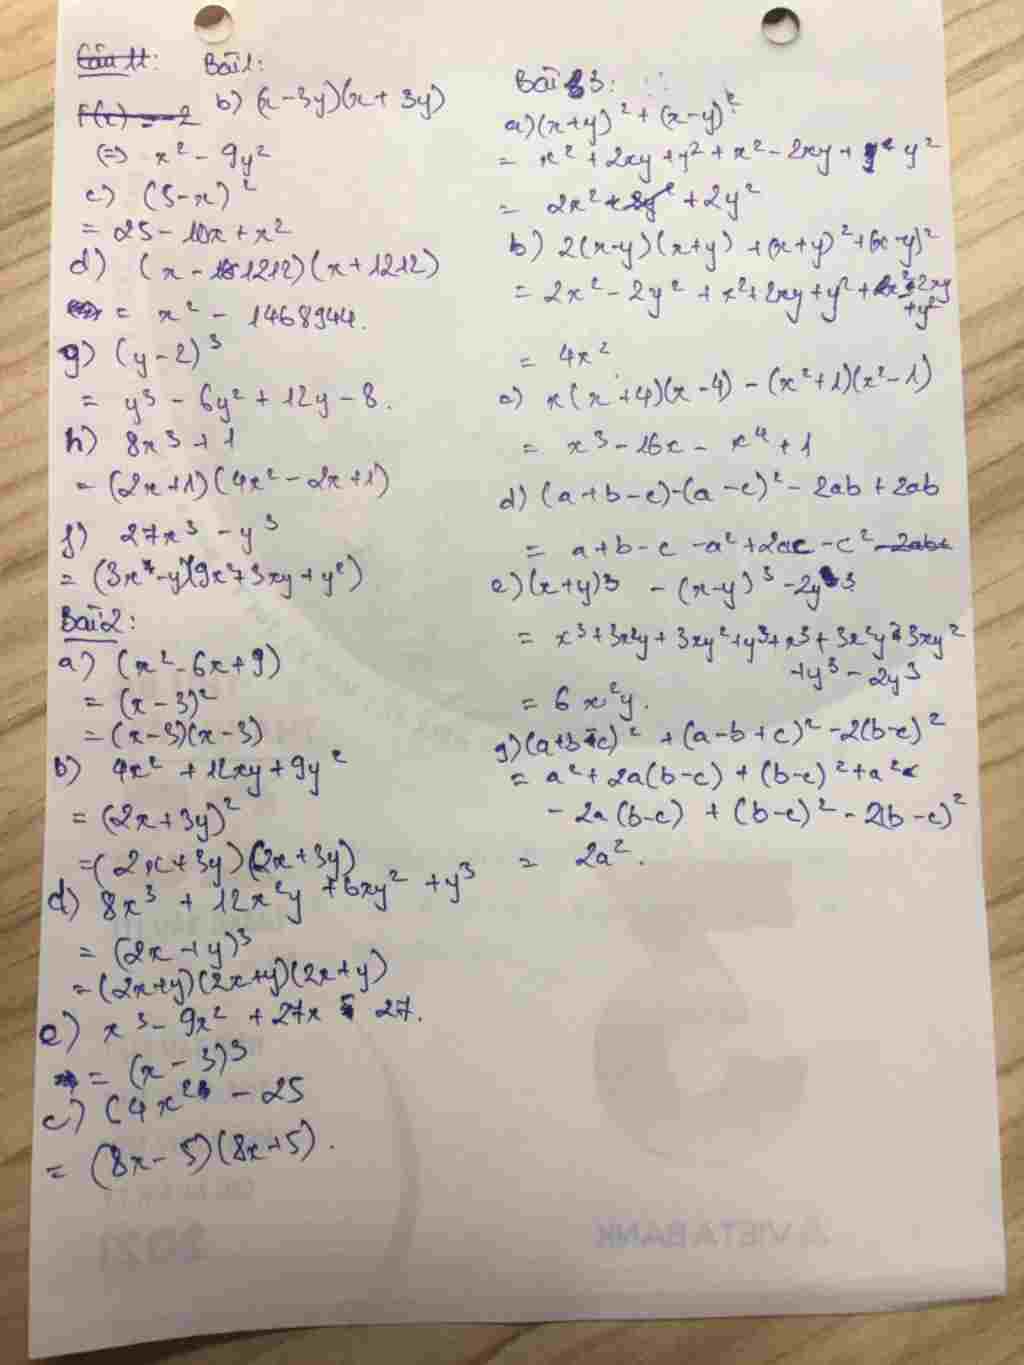 Câu 11: Bài 1:
F(x) = 2 b) (x-3y)(x+3y)
(=) x² - 9y²
c) (5-x)²
= 25 - 10x + x²
d) (x - 1212)(x+1212)
= x² - 1468944.
g) (y-2)³
= y³ - 6y² + 12y - 8.
h) 8x³ + 1
= (2x+1)(4x² - 2x+1)
f) 27x³ - y³
= (3x - y)(9x²+3xy+y²)
Bài 2:
a) (x² - 6x + 9)
= (x - 3)²
= (x-3)(x-3)
b) 4x² + 12xy + 9y²
= (2x+3y)²
= (2x+3y)(2x+3y)
d) 8x³ + 12x²y + 6xy² + y³
= (2x+y)³
= (2x+y)(2x+y)(2x+y)
e) x³ - 9x² + 27x 27.
= (x - 3)³
c) (4x² - 25
= (8x - 5)(8x+5).
Bài 3:
a) (x+y)² + (x-y)²
= x² + 2xy + y² + x² - 2xy + y²
= 2x² + 2y²
b) 2(x-y)(x+y) + (x+y)² + (x-y)²
= 2x² - 2y² + x² + 2xy + y² + x² - 2xy
+ y²
= 4x².
c) x(x+4)(x-4) - (x²+1)(x²-1)
= x³ - 16x - x⁴ + 1
d) (a+b-c)-(a-c)² - 2ab + 2ab
= a+b-c -a² + 2ac - c² - 2ab
e) (x+y)3 - (x-y)³ - 2y3
= x³ + 3x²y + 3xy² + y³ + x³ + 3x²y - 3xy²
+ y³ - 2y³
= 6x²y.
g) (a+b-c)² + (a-b+c)² - 2(b-c)²
= a² + 2a(b-c) + (b-c)² + a²
- 2a(b-c) + (b-c)² - 2(b-c)²
= 2a².
VIETABANK
2021